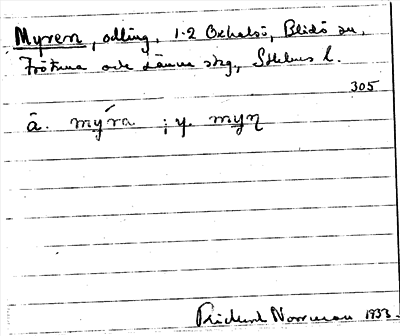 Myren, odling, 1-2 Oxhalsö, Blidö sn,
Frötuna och Länna skg, Sthlms l.
305
ä. mýra ; y. myɳ
Rickard Norrman 1933.